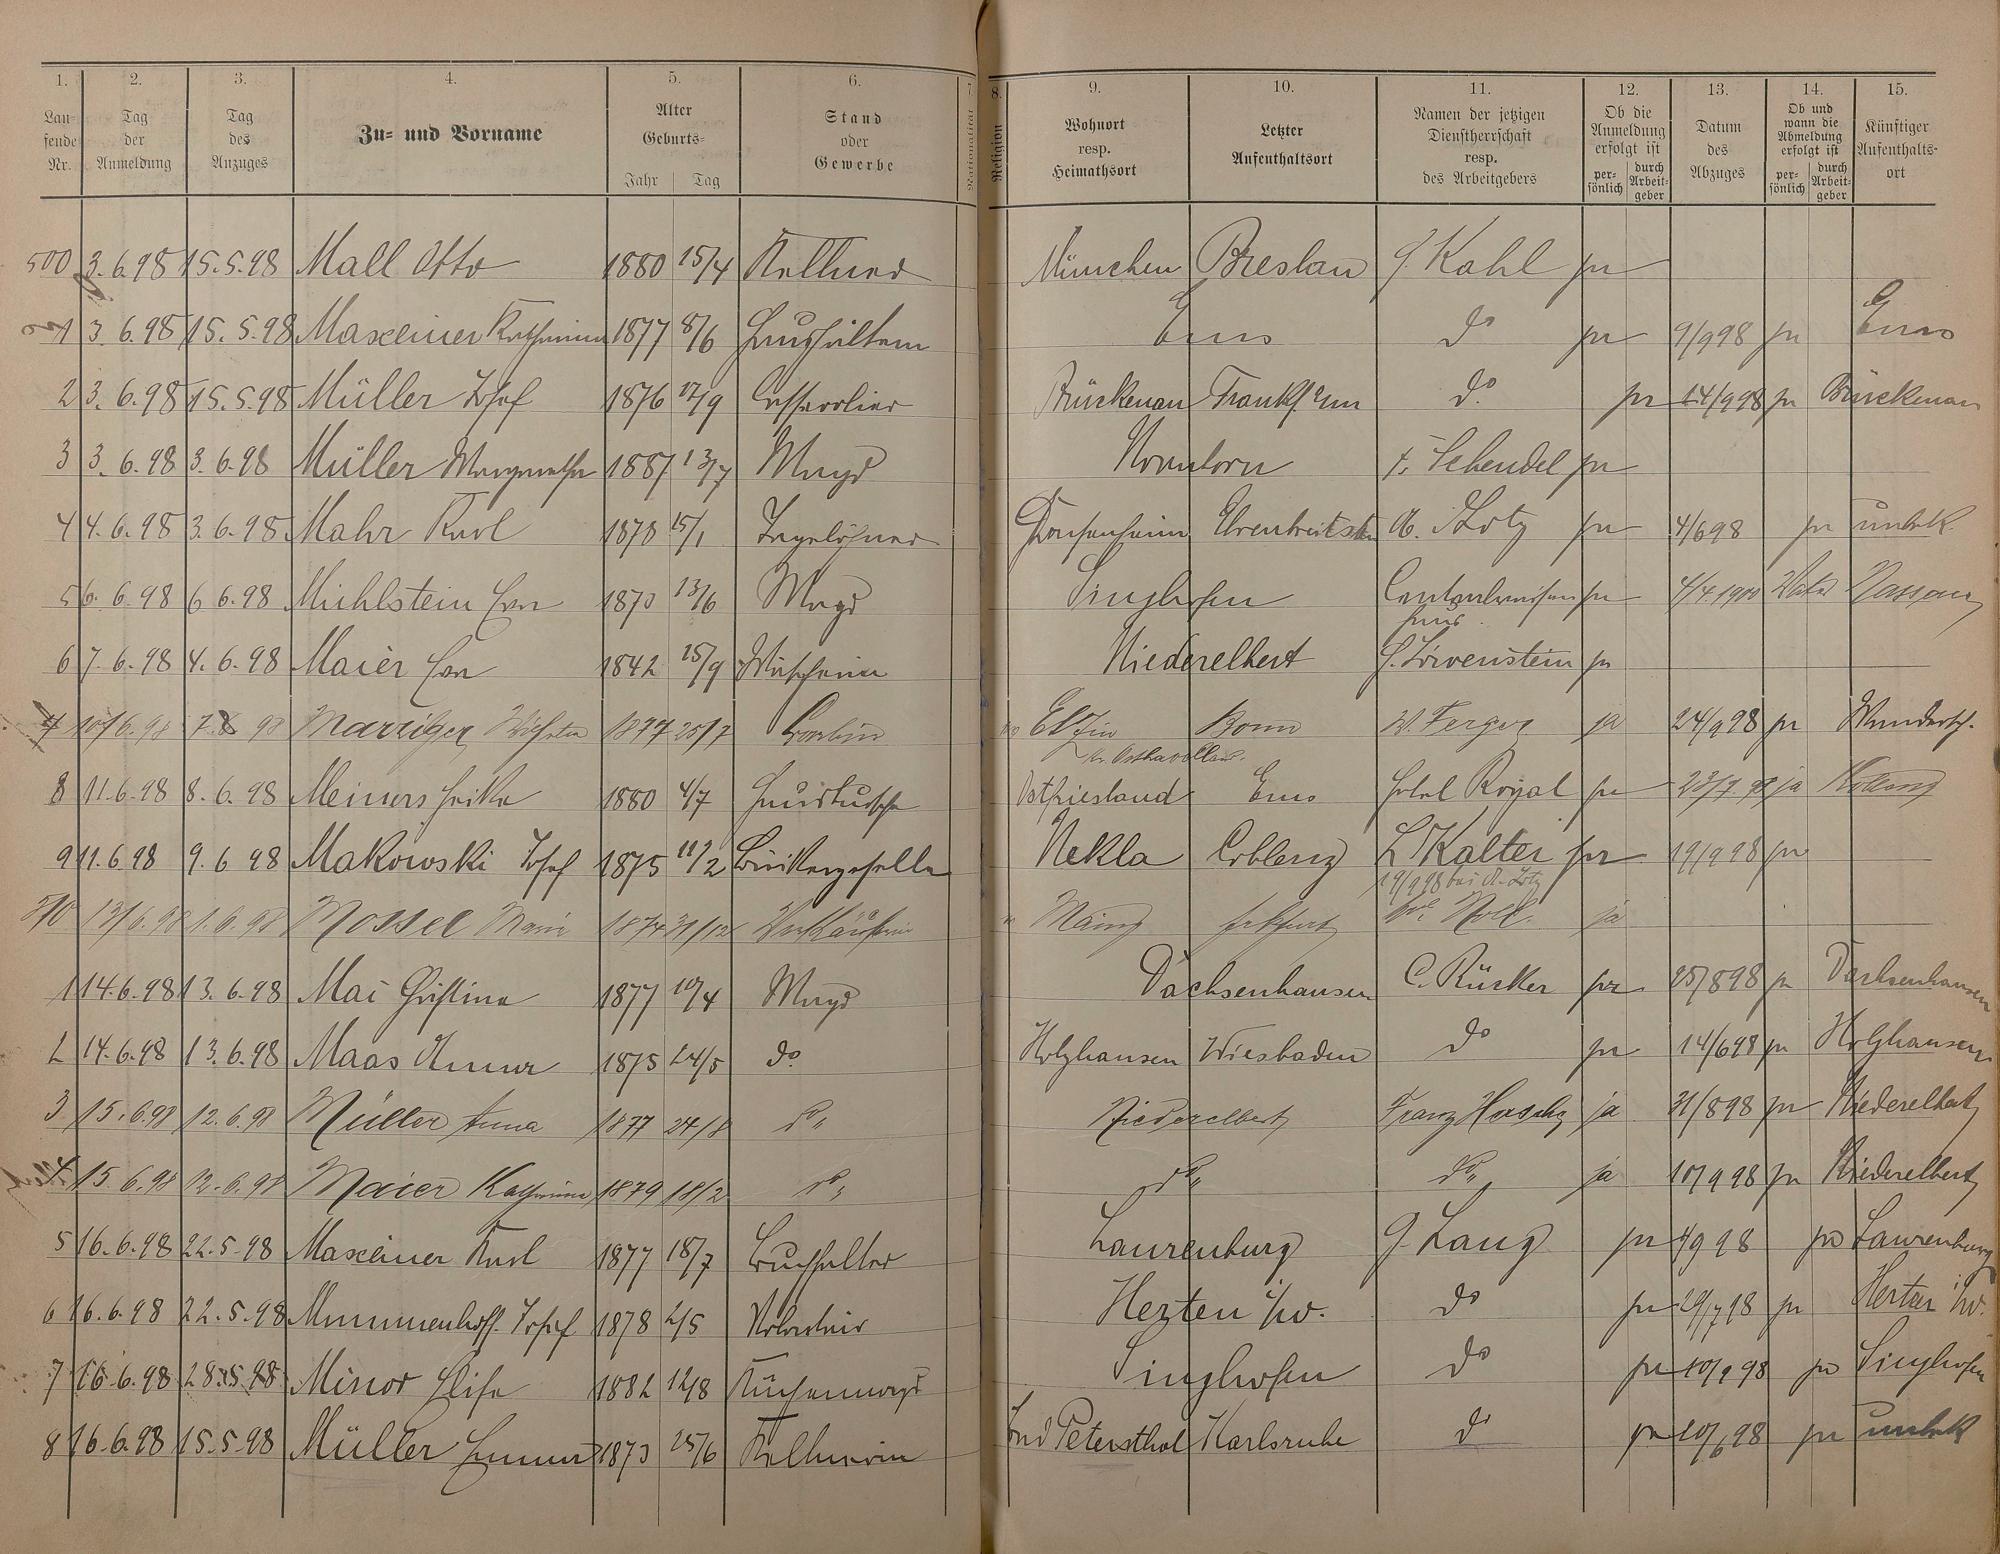 1. 2. 3. 4. 5. 6. 7. 8. 9. 10. 11. 12. 13. 14. 15.
Laufende Nr. | Tag der Anmeldung | Tag des Anzuges | Zu- und Vorname | Alter Geburts- Jahr Tag | Stand oder Gewerbe | Nationalität | Religion | Wohnort resp. Heimathsort | Letzter Aufenthaltsort | Namen der jetzigen Dienstherrschaft resp. des Arbeitgebers | Ob die Anmeldung erfolgt ist persönlich durch Arbeitgeber | Datum des Abzuges | Ob und wann die Abmeldung erfolgt ist persönlich durch Arbeitgeber | Künftiger Aufenthaltsort
500 3.6.98 15.5.98 Mall Otto 1880 15/4 Kellner München Breslau J. Kahl
1 3.6.98 15.5.98 Maxeiner Katharina 1877 8/6 Haushälterin Ems do 9/9 98 Ems
2 3.6.98 15.5.98 Müller Josef 1876 12/9 Brückenau Frankf. a/m do 14/9 98 Brückenau
3 3.6.98 3.6.98 Müller Margaretha 1887 13/7 Magd Nornborn F. Schendel
4 4.6.98 3.6.98 Mahr Karl 1878 15/1 Tagelöhner Ehrenbreitstein A. Lotz 4/6 98 unbek.
5 6.6.98 6 6.98 Mühlstein Eva 1873 13/6 Magd Singhofen 4/4 1900 Nassau
6 7.6.98 4.6.98 Maier Eva 1842 25/9 Wäscherin Niederelbert S. Löwenstein
7 10/6.98 7.6 98 Wilhelm 1877 25/7 Bonn W. Ferger ja 24/9 98 Wandersch.
Kr. Osthavelland.
8 11.6.98 8.6.98 Meiners 1880 4/7 Hausbursche Ostfriesland Ems Hotel Royal 23/9 98 ja
9 11.6.98 9.6 98 Makowski Josef 1875 11/2 Bäckergeselle Nekla Coblenz L Kalter 19/9 98
19/9 98 bei A. Lotz
510 13/6.98 1.6.98 Mossel Marie 1874 31/12 Verkäuferin Mainz Frkfurt ja
1 14.6.98 13.6.98 Mai Christine 1877 10/4 Magd Dachsenhausen C. Rücker 25/8 98 Dachsenhausen
2 14.6.98 13.6.98 Maas Anna 1875 24/5 do. Holzhausen Wiesbaden do 14/6 98 Holzhausen
3 15.6.98 12.6.98 Müller Anna 1877 24/8 do Niederelbert Franz ja 31/8 98 Niederelbert
4 15.6.98 12.6.98 Maier Katharina 1879 18/2 do do do ja 10/9 98 Niederelbert
5 16.6.98 22.5.98 Maxeiner Karl 1877 18/7 Buchhalter Laurenburg G. Lang 4/9 98 Laurenburg
6 16.6.98 22.5.98 Mummenhoff Josef 1878 2/5 Volontair Herten i/w. do 29/7 98 Herten i/w.
7 16.6.98 28.5.98 Minor Elise 1882 12/8 Küchenmagd Singhofen do 10/9 98 Singhofen
8 16.6.98 15.5.98 Müller Emma 1873 25/6 Kellnerin Bad Petersthal Karlsruhe do 20/6 98 unbek